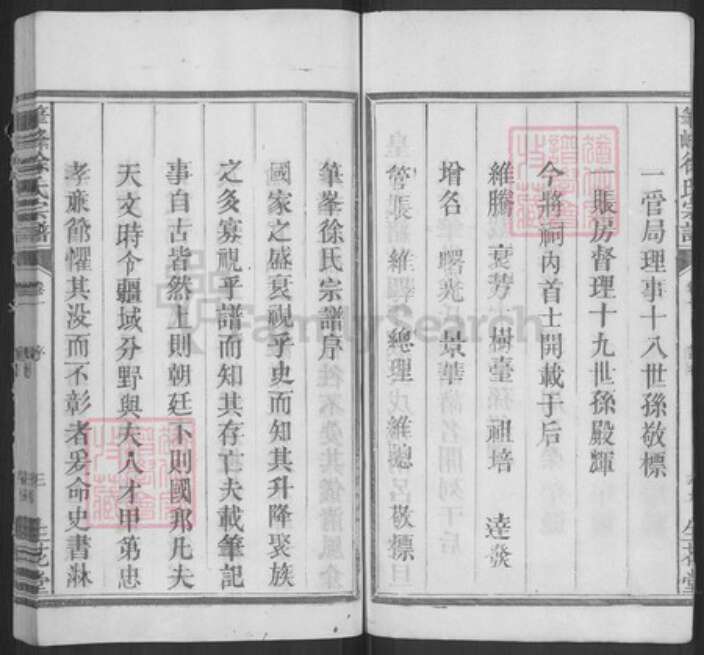 一管局理事十八世孫敬標
一賬房督理十九世孫殿輝
今將祠內首士開載于后
維騰 衰芳 樹臺 祖培 達發
增名 曙光 景華
管賬 維驛 總理 維總 呂敬標
筆峯徐氏宗譜序
國家之盛衰視乎史而知其升降眾族
之多寡視乎譜而知其存亡夫載筆記
事自古皆然上則朝廷下則國邦凡夫
天文時令疆域分野與夫人才甲第忠
孝廉節懼其没而不彰者爰命史書淋
筆峰徐氏宗譜
卷一
序
三
生花堂
FamilySearch